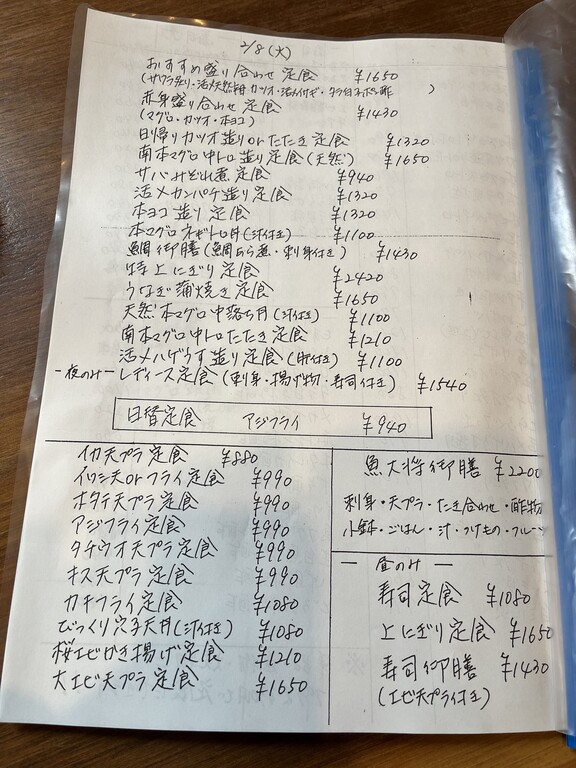 2/8(火)
おすすめ盛り合わせ定食 ¥1650
(サワラ造り・活〆天然 カツオ・活〆 ・タラ白子ポン酢 )
赤身盛り合わせ定食 ¥1430
(マグロ・カツオ・本ヨコ)
日帰りカツオ造りorたたき定食 ¥1320
南本マグロ中トロ造り定食(天然) ¥1650
サバみぞれ煮定食 ¥940
活〆カンパチ造り定食 ¥1320
本ヨコ造り定食 ¥1320
本マグロネギトロ丼(汁付き) ¥1100
鯛御膳(鯛あら煮・刺身付き) ¥1430
特上にぎり定食 ¥2420
うなぎ蒲焼き定食 ¥1650
天然本マグロ中落ち丼(汁付き) ¥1100
南本マグロ中トロたたき定食 ¥1210
活〆ハゲうす造り定食(肝付き) ¥1100
-夜のみ-レディース定食(刺身・揚げ物・寿司付き) ¥1540
日替定食 アジフライ ¥940
イカ天プラ定食 ¥880
イワシ天orフライ定食 ¥990
ホタテ天プラ定食 ¥990
アジフライ定食 ¥990
タチウオ天プラ定食 ¥990
キス天プラ定食 ¥990
カキフライ定食 ¥1080
びっくり穴子天丼(汁付き) ¥1080
桜エビかき揚げ定食 ¥1210
大エビ天プラ定食 ¥1650
魚大将御膳 ¥2200
刺身・天プラ・たき合わせ・酢物
小鉢・ごはん・汁・つけもの・フルーツ
— 昼のみ —
寿司定食 ¥1080
上にぎり定食 ¥1650
寿司御膳 ¥1430
(エビ天プライ付き)